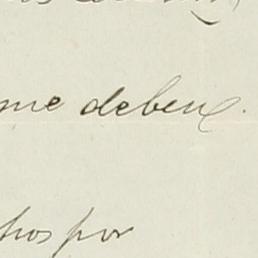 me deben.
hos por